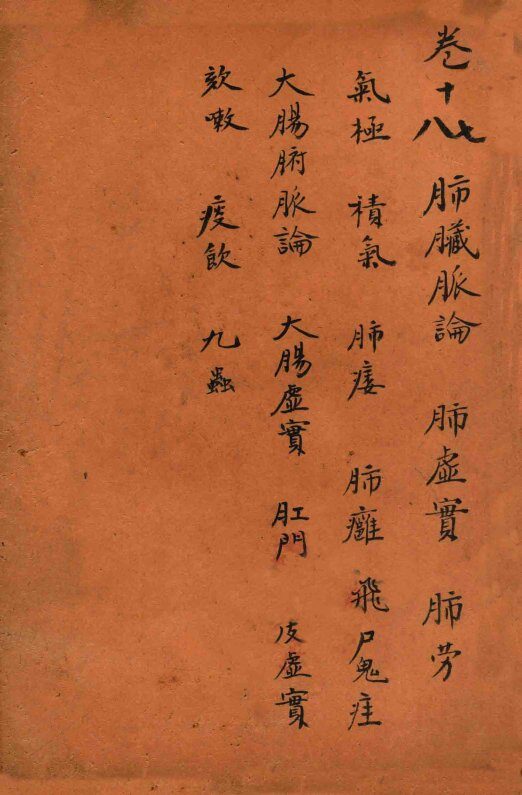 卷十七八 肺臟脈論 肺虛實 肺劳
氣極 積氣 肺痿 肺癰 飛尸鬼疰
大腸腑脈論 大腸虛實 肛門 皮虛實
欬嗽 痰飲 九蟲